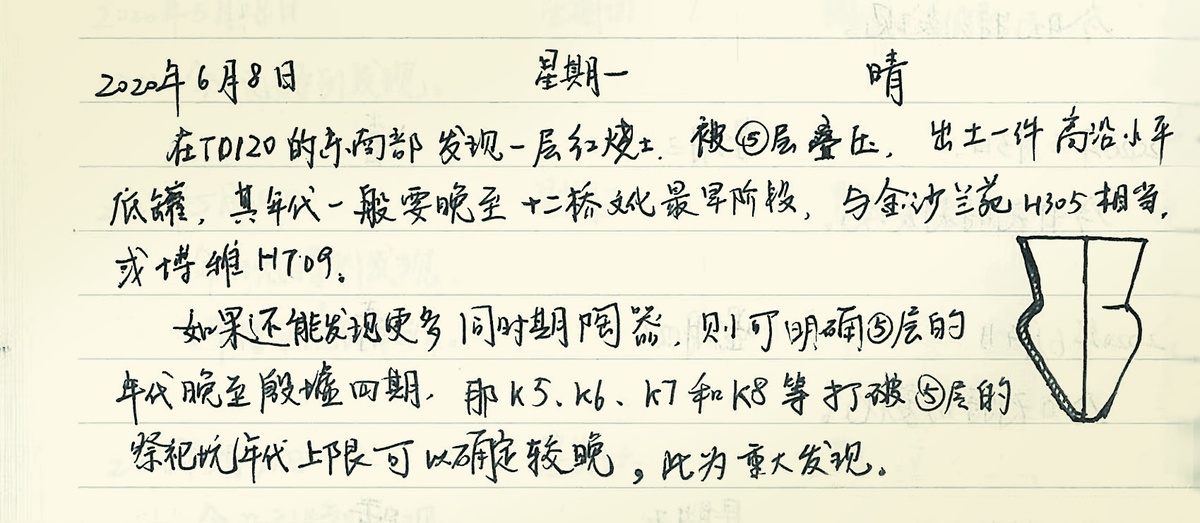 2020年6月8日 星期一 晴
在TD120的东南部发现一层红烧土,被⑤层叠压,出土一件高沿小平
底罐,其年代一般要晚至十二桥文化最早阶段,与金沙兰苑H305相当,
或博雅H709。
如果还能发现更多同时期陶器,则可明确⑤层的
年代晚至殷墟四期,那K5、K6、K7和K8等打破⑤层的
祭祀坑年代上限可以确定较晚,此为重大发现。